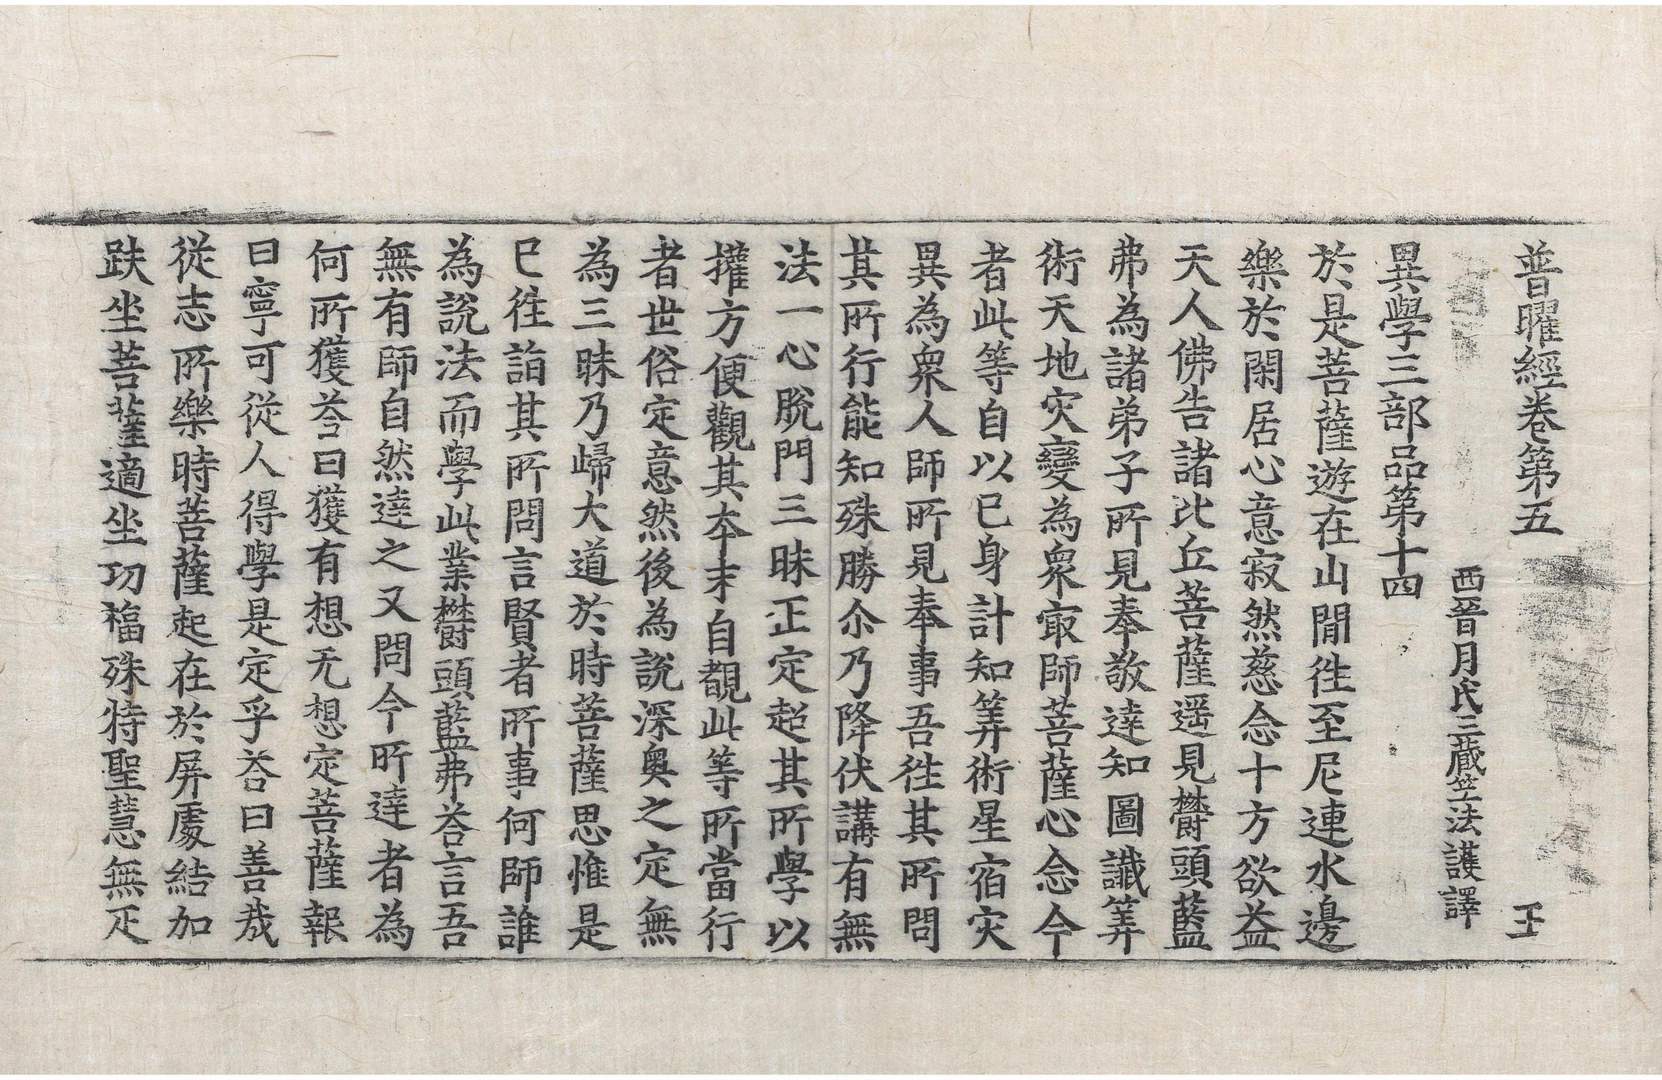 普曜經卷第五 王
西晉月氏三藏竺法護譯
異學三部品第十四
於是菩薩遊在山閒徃至尼連水邊
樂於閑居心意寂然慈念十方欲益
天人佛告諸比丘菩薩遥見欝頭藍
弗為諸弟子所見奉敬達知圖讖筭
術天地灾變為衆㝡師菩薩心念今
者此等自以已身計知筭術星宿灾
異為衆人師所見奉事吾徃其所問
其所行能知殊勝尒乃降伏講有無
法一心脫門三昧正定超其所學以
攉方便觀其本末自覩此等所當行
者世俗定意然後為說深奧之定無
為三昧乃歸大道於時菩薩思惟是
已徃詣其所問言賢者所事何師誰
為說法而學此業欝頭藍弗荅言吾
無有師自然達之又問今所達者為
何所獲荅曰獲有想无想定菩薩報
曰寧可從人得學是定乎荅曰善哉
從志所樂時菩薩起在於屏處結加
趺坐菩薩適坐功福殊特聖慧無疋